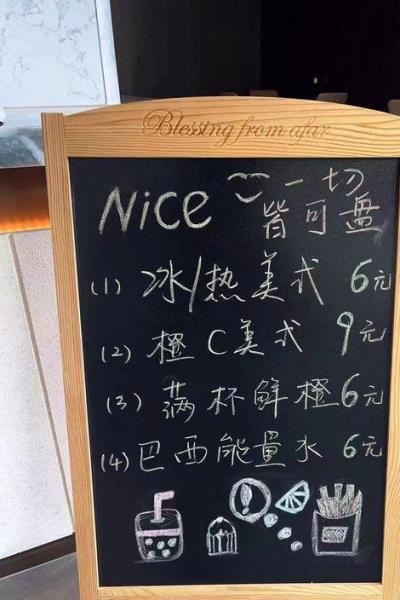 Blessing from afar
Nice 一切
皆可盘
(1) 冰/热美式 6元
(2) 橙C美式 9元
(3) 满杯鲜橙 6元
(4) 巴西能量水 6元